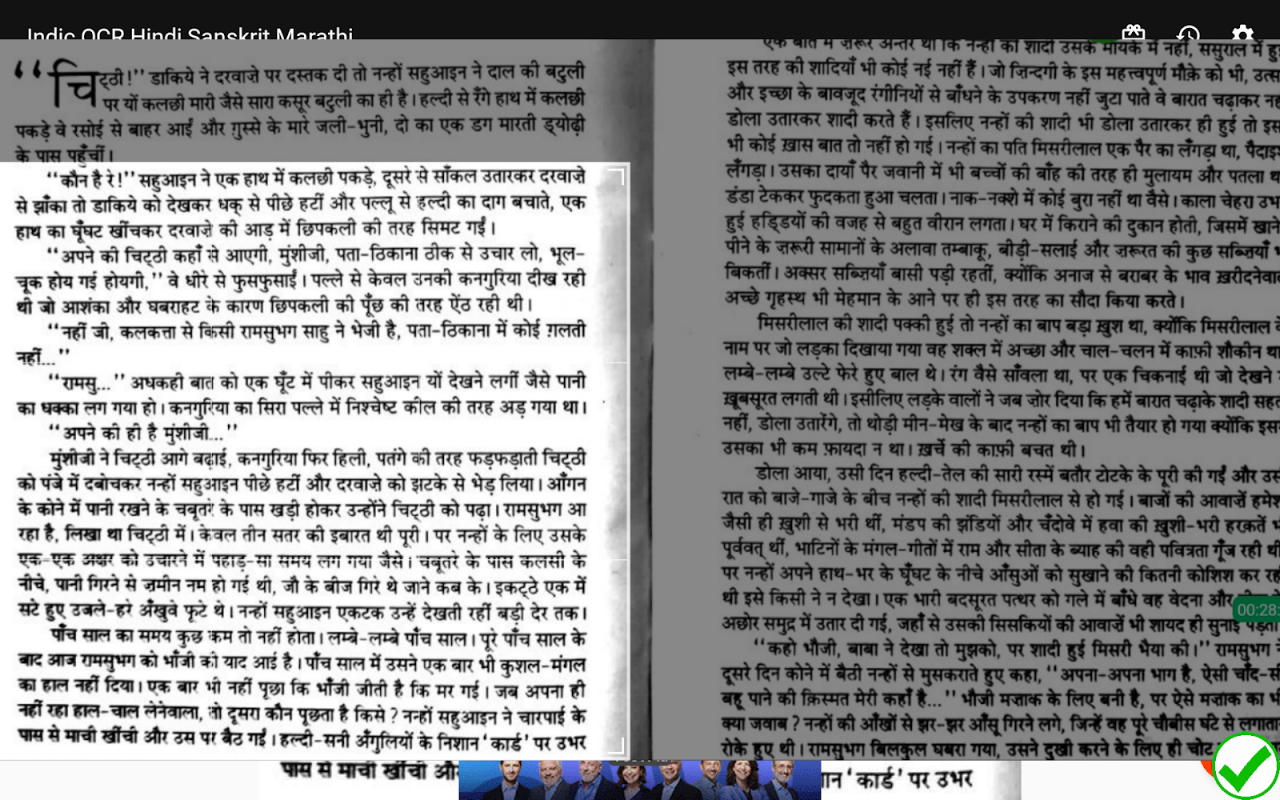 Indic OCR Hindi Sanskrit Marathi
“चिट्ठी!” डाकिये ने दरवाज़े पर दस्तक दी तो नन्हों सहुआइन ने दाल की बटुली
पर यों कलछी मारी जैसे सारा कसूर बटुली का ही है। हल्दी से रँगे हाथ में कलछी
पकड़े वे रसोई से बाहर आईं और ग़ुस्से के मारे जली-भुनी, दो का एक डग मारती ड्योढ़ी
के पास पहुँचीं।
“कौन है रे!” सहुआइन ने एक हाथ में कलछी पकड़े, दूसरे से साँकल उतारकर दरवाज़े
से झाँका तो डाकिये को देखकर धक् से पीछे हटीं और पल्लू से हल्दी का दाग बचाते, एक
हाथ का घूँघट खींचकर दरवाज़े की आड़ में छिपकली की तरह सिमट गईं।
“अपने की चिट्ठी कहाँ से आएगी, मुंशीजी, पता-ठिकाना ठीक से उचार लो, भूल-
चूक होय गई होयगी,” वे धीरे से फुसफुसाईं। पल्ले से केवल उनकी कनगुरिया दीख रही
थी जो आशंका और घबराहट के कारण छिपकली की पूँछ की तरह ऐंठ रही थी।
“नहीं जी, कलकत्ता से किसी रामसुभग साहु ने भेजी है, पता-ठिकाना में कोई ग़लती
नहीं...”
“रामसु...” अधकही बात को एक घूँट में पीकर सहुआइन यों देखने लगीं जैसे पानी
का धक्का लग गया हो। कनगुरिया का सिरा पल्ले में निश्चेष्ट कील की तरह अड़ गया था।
“अपने की ही है मुंशीजी...”
मुंशीजी ने चिट्ठी आगे बढ़ाई, कनगुरिया फिर हिली, पतंगे की तरह फड़फड़ाती चिट्ठी
को पंजे में दबोचकर नन्हों सहुआइन पीछे हटीं और दरवाज़े को झटके से भेड़ लिया। आँगन
के कोने में पानी रखने के चबूतरे के पास खड़ी होकर उन्होंने चिट्ठी को पढ़ा। रामसुभग आ
रहा है, लिखा था चिट्ठी में। केवल तीन सतर की इबारत थी पूरी। पर नन्हों के लिए उसके
एक-एक अक्षर को उचारने में पहाड़-सा समय लग गया जैसे। चबूतरे के पास कलसी के
नीचे, पानी गिरने से ज़मीन नम हो गई थी, जौ के बीज गिरे थे जाने कब के। इकट्ठे एक में
सटे हुए उजले-हरे अँखुवे फूटे थे। नन्हों सहुआइन एकटक उन्हें देखती रहीं बड़ी देर तक।
पाँच साल का समय कुछ कम तो नहीं होता। लम्बे-लम्बे पाँच साल। पूरे पाँच साल के
बाद आज रामसुभग को भौजी की याद आई है। पाँच साल में उसने एक बार भी कुशल-मंगल
का हाल नहीं दिया। एक बार भी नहीं पूछा कि भौजी जीती है कि मर गई। जब अपना ही
नहीं रहा हाल-चाल लेनेवाला, तो दूसरा कौन पूछता है किसे? नन्हों सहुआइन ने चारपाई के
पास से माची खींची और उस पर बैठ गईं। हल्दी-सनी अँगुलियों के निशान ‘कार्ड’ पर उभर
एक बात में ज़रूर अन्तर था कि नन्हों की शादी उसके मायके में नहीं, ससुराल में
इस तरह की शादियाँ भी कोई नई नहीं हैं। जो ज़िन्दगी के इस महत्त्वपूर्ण मौक़े को भी,
और इच्छा के बावजूद रंगीनियों से बाँधने के उपकरण नहीं जुटा पाते वे बारात चढ़ाकर
डोला उतारकर शादी करते हैं। इसलिए नन्हों की शादी भी डोला उतारकर ही हुई तो
भी कोई ख़ास बात तो नहीं हो गई। नन्हों का पति मिसरीलाल एक पैर का लँगड़ा था,
लँगड़ा। उसका दायाँ पैर जवानी में भी बच्चों की बाँह की तरह ही मुलायम और पतला
डंडा टेककर फुदकता हुआ चलता। नाक-नक्शे में कोई बुरा नहीं था वैसे। काला चेहरा
हुई हड्डियों की वजह से बहुत वीरान लगता। घर में किराने की दुकान होती, जिसमें
पीने के ज़रूरी सामानों के अलावा तम्बाकू, बीड़ी-सलाई और ज़रूरत की कुछ सब्ज़ियाँ
बिकतीं। अक्सर सब्ज़ियाँ बासी पड़ी रहतीं, क्योंकि अनाज से बराबर के भाव
अच्छे गृहस्थ भी मेहमान के आने पर ही इस तरह का सौदा किया करते।
मिसरीलाल की शादी पक्की हुई तो नन्हों का बाप बड़ा ख़ुश था, क्योंकि मिसरीलाल
नाम पर जो लड़का दिखाया गया वह शक्ल में अच्छा और चाल-चलन में काफ़ी शौकीन
लम्बे-लम्बे उल्टे फेरे हुए बाल थे। रंग वैसे साँवला था, पर एक चिकनाई थी जो देखने
ख़ूबसूरत लगती थी। इसीलिए लड़के वालों ने जब ज़ोर दिया कि हमें बारात चढ़ाके शादी
नहीं, डोला उतारेंगे, तो थोड़ी मीन-मेख के बाद नन्हों का बाप भी तैयार हो गया क्योंकि
उसका भी कम फ़ायदा न था। ख़र्चे की काफ़ी बचत थी।
डोला आया, उसी दिन हल्दी-तेल की सारी रस्में बतौर टोटके के पूरी की गईं और
रात को बाजे-गाजे के बीच नन्हों की शादी मिसरीलाल से हो गई। बाजों की आवाज़ें
जैसी ही ख़ुशी से भरी थीं, मंडप की झंडियों और चँदोवे में हवा की ख़ुशी-भरी हरकतें
पूर्ववत् थीं, भाटिनों के मंगल-गीतों में राम और सीता के ब्याह की वही पवित्रता गूँज रही
पर नन्हों अपने हाथ-भर के घूँघट के नीचे आँसुओं को सुखाने की कितनी कोशिश कर
थी इसे किसी ने न देखा। एक भारी बदसूरत पत्थर को गले में बाँधे वह वेदना और
अछोर समुद्र में उतार दी गई, जहाँ से उसकी सिसकियों की आवाज़ें भी शायद ही सुनाई
00:28:
“कहो भौजी, बाबा ने देखा तो मुझको, पर शादी हुई मिसरी भैया की।” रामसुभग
दूसरे दिन कोने में बैठी नन्हों से मुसकराते हुए कहा, “अपना-अपना भाग है, ऐसी
बहू पाने की क़िस्मत मेरी कहाँ है...” भौजी मज़ाक के लिए बनी है, पर ऐसे मज़ाक का
क्या जवाब? नन्हों की आँखों से झर-झर आँसू गिरने लगे, जिन्हें वह पूरे चौबीस घंटे से
रोके हुए थी। रामसुभग बिलकुल घबरा गया, उसने दुखी करने के लिए ही चोट
पास से माची खींची और
‘कार्ड’ पर उभर